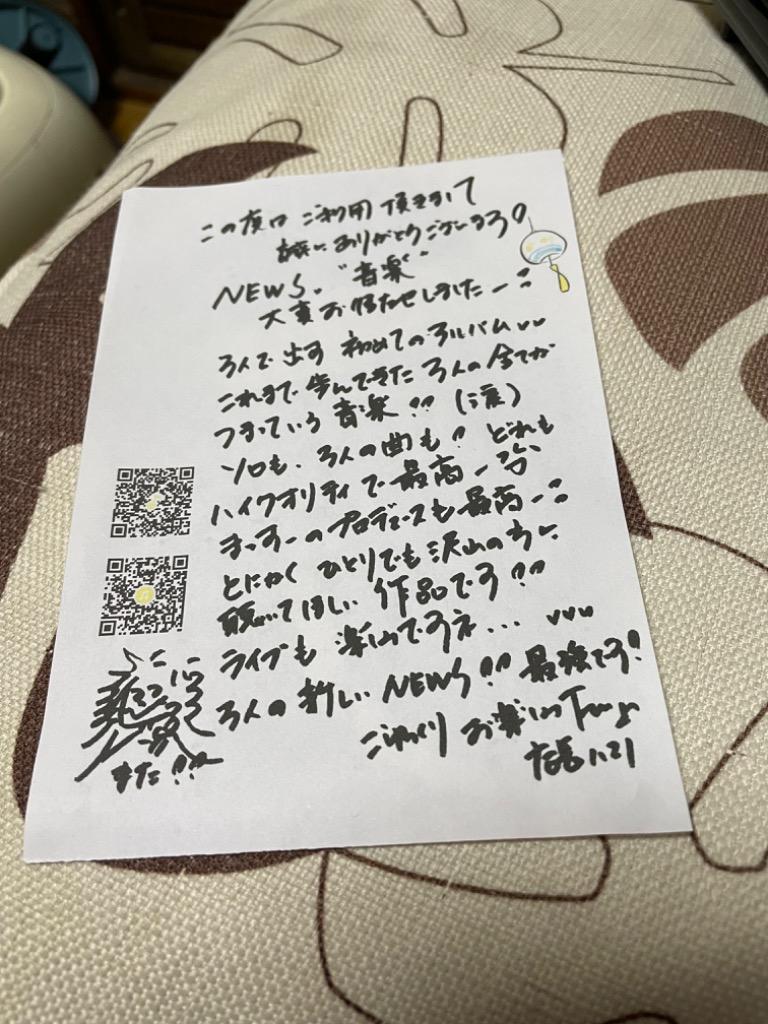 この度は ご利用 頂きまして
誠に ありがとうございます。
NEWS. "音楽"
大変お待たせしましたー
3人で出す 初めてのアルバム
これまで 歩んできた 3人の全てが
つまっている 音楽!! (涙)
ソロも、3人の曲も! どれも
ハイクオリティで 最高ー
まっすーのプロデュースも最高ー
とにかく ひとりでも 沢山の方に
聴いてほしい 作品です!!
ライブも 楽しみですネ...
3人の 新しい NEWS!! 最強です!
ごゆっくり お楽しみ下さい
また!!